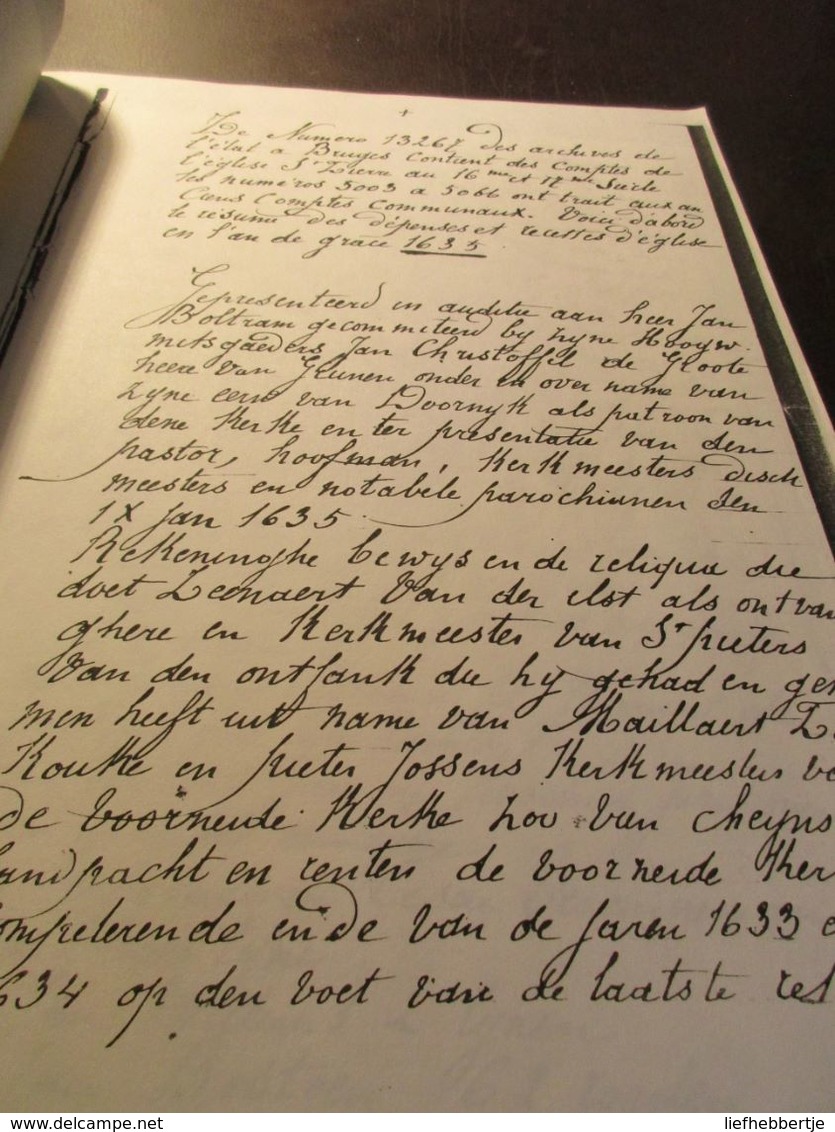 +
De Numero 13267 des archives de
l'état a Bruges contient des comptes de
l'église St Pierre au 16me et 17me Siècle
les numéros 5003 a 5066 ont trait aux an
ciens comptes communaux. Voici d'abord
le résumé des dépenses et recettes d'église
en l'an de grace 1635
Gepresenteerd en auditie aan heer Jan
Boltram gecommiteerd by zyne Hoogw.
mitsgaeders Jan Christoffel de Groote
heere van Geunen onder en over name van
zyne eerw van Doornyk als patroon van
dene Kerke en ter presentatie van den
pastor, hoofman, Kerkmeesters disch
meesters en notabele parochianen den
IX Jan 1635
Rekeninghe bewys en de reliqua die
doet Leenaert Van der elst als ontvan
ghere en Kerkmeester van St pieters
Van den ontfank die hy gehad en gen
men heeft uit name van Maillaert
Kouke en pieter Jossens Kerkmeesters vo
de voorneide Kerke zoo van cheyns
landpacht en renten de voorneide Ker
ompeterende ende van de jaren 1633 e
634 op den voet van de laatste rek
delcampe.net
liefhebbertje